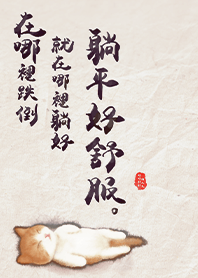 躺平好舒服。
在哪裡跌倒
就在哪裡躺好